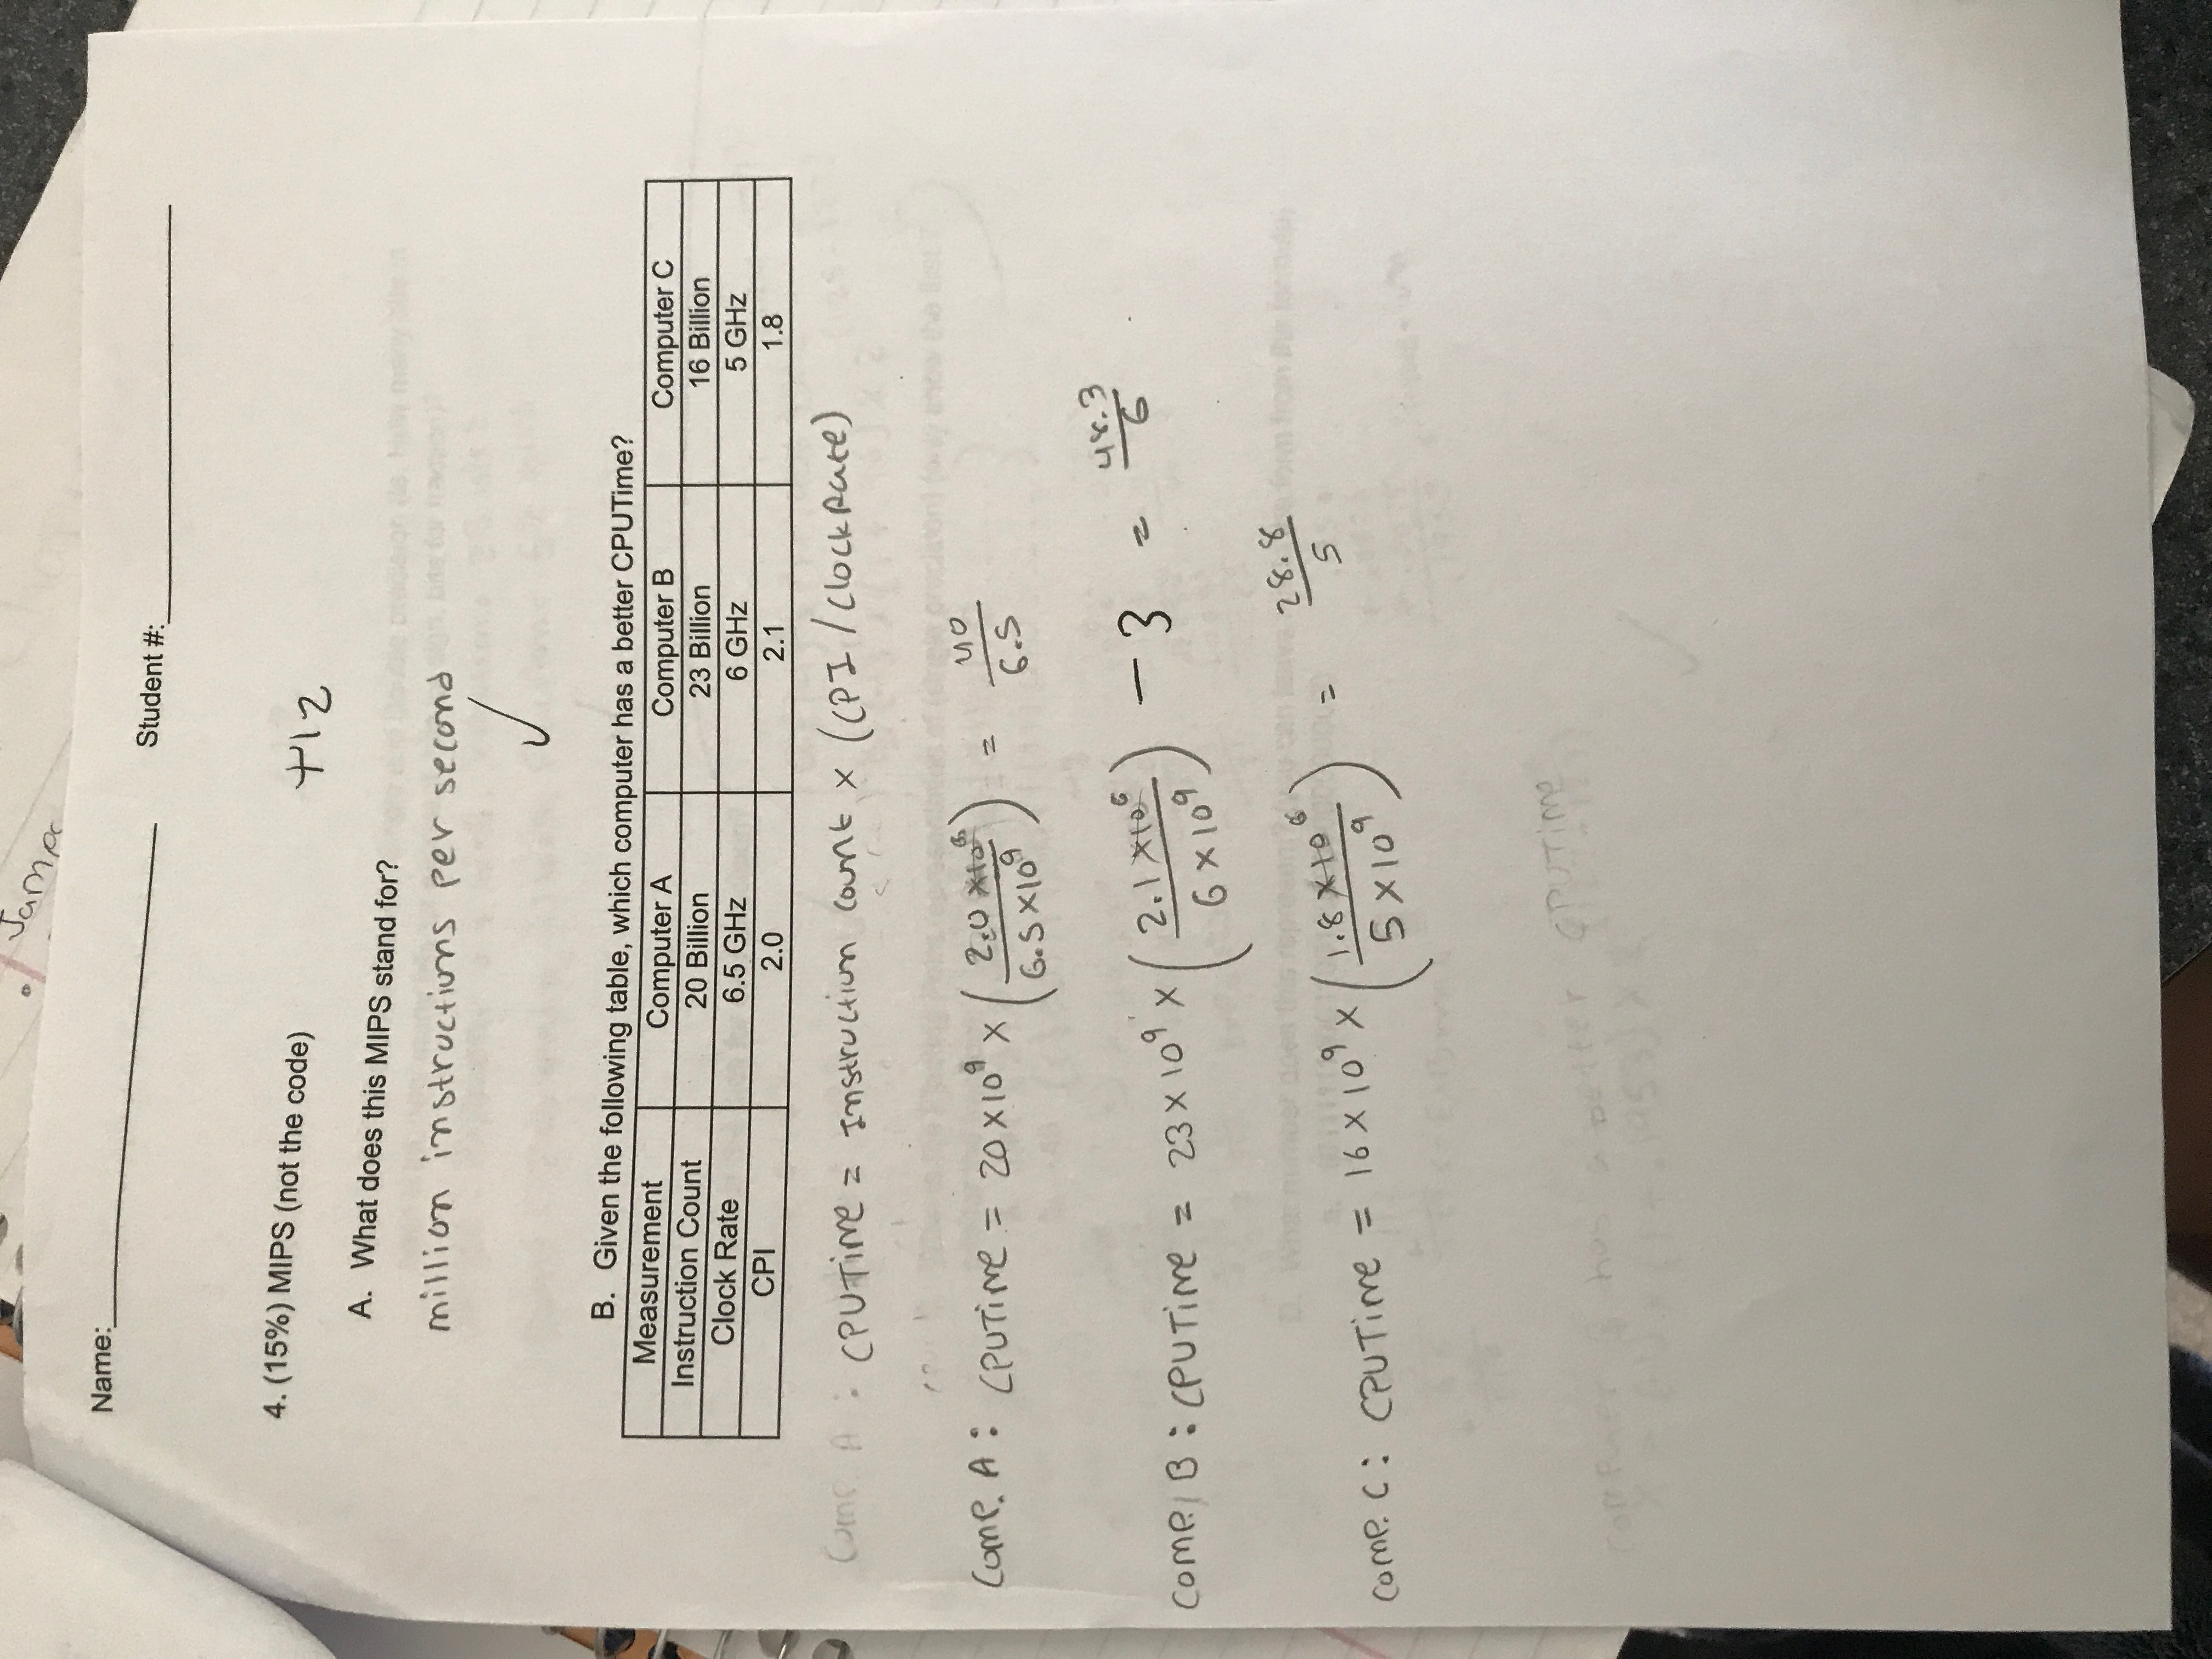 Name:
Student #:
4. (15%) MIPS (not the code)
+12
A. What does this MIPS stand for?
million instructions per second
B. Given the following table, which computer has a better CPUTime?
Measurement Computer A Computer B Computer C
Instruction Count 20 Billion 23 Billion 16 Billion
Clock Rate 6.5 GHz 6 GHz 5 GHz
CPI 2.0 2.1 1.8
Comp. A : CPUTime = Instruction count x (CPI / ClockRate)
Comp. A : CPUTime = 20 x 10⁹ x (2.0 x10⁶ / 6.5 x 10⁹) = 40 / 6.5
Comp. B : CPUTime = 23 x 10⁹ x (2.1 x10⁶ / 6 x 10⁹) - 3 = 48.3 / 6
Comp. C : CPUTime = 16 x 10⁹ x (1.8 x10⁶ / 5 x 10⁹) = 28.8 / 5
computer has a better CPUTime